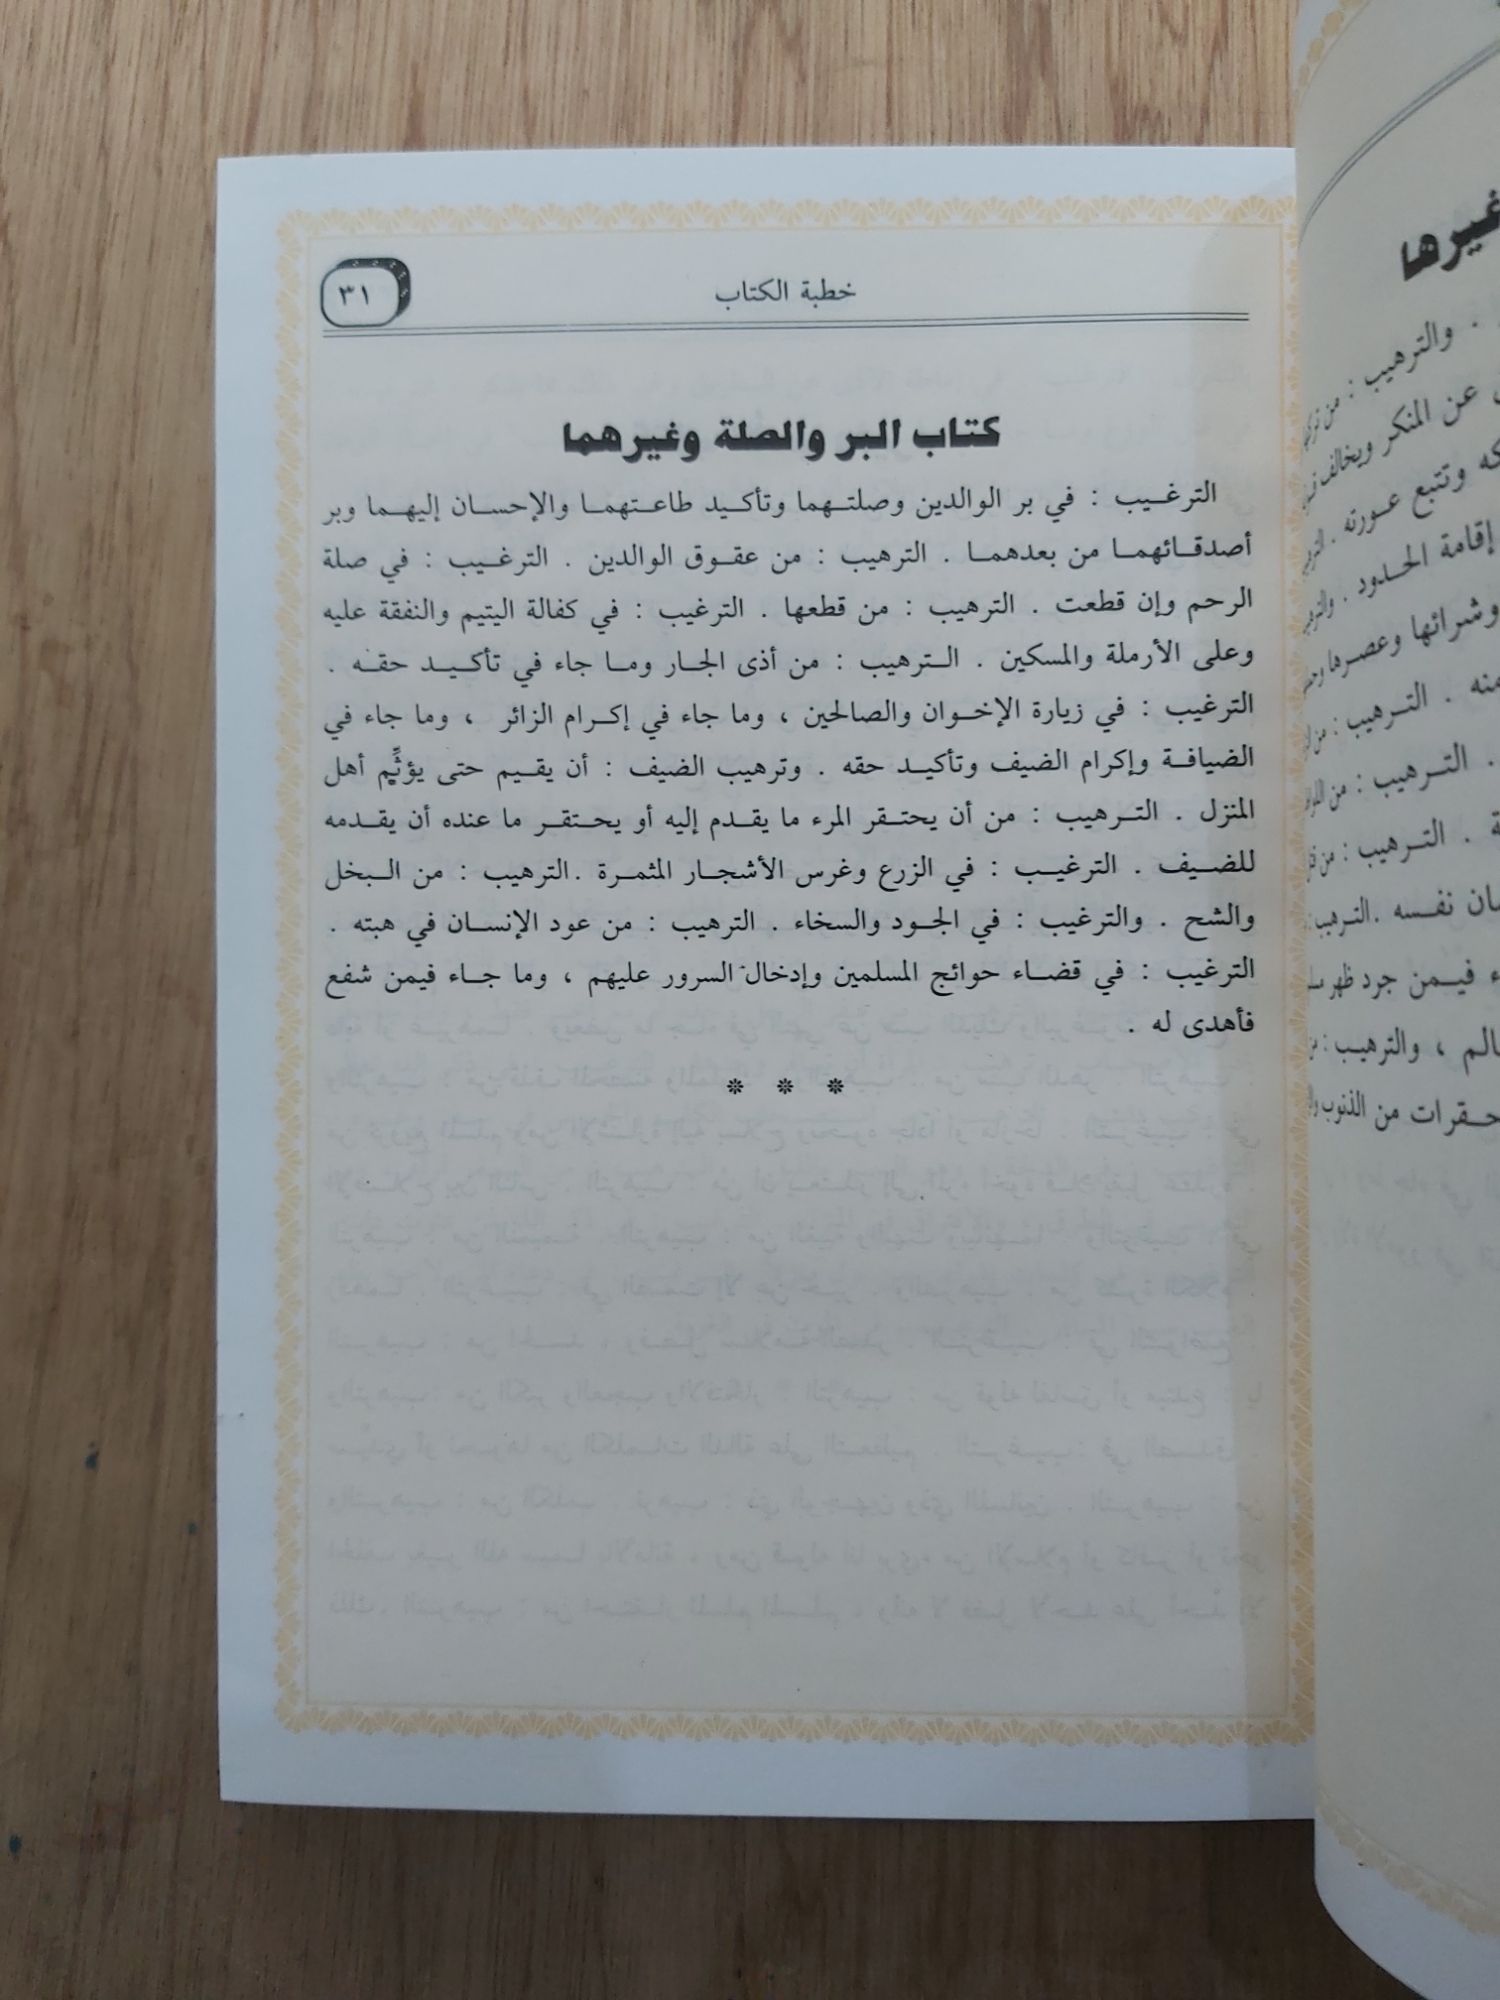 خطبة الكتاب
٣١
كتاب البر والصلة وغيرهما
الترغيب : في بر الوالدين وصلتهما وتأكيد طاعتهما والإحسان إليهما وبر
أصدقائهما من بعدهما . الترهيب : من عقوق الوالدين . الترغيب : في صلة
الرحم وإن قطعت . الترهيب : من قطعها . الترغيب : في كفالة اليتيم والنفقة عليه
وعلى الأرملة والمسكين . الترهيب : من أذى الجار وما جاء في تأكيد حقه .
الترغيب : في زيارة الإخوان والصالحين ، وما جاء في إكرام الزائر ، وما جاء في
الضيافة وإكرام الضيف وتأكيد حقه . وترهيب الضيف : أن يقيم حتى يؤثِّم أهل
المنزل . الترهيب : من أن يحتقر المرء ما يقدم إليه أو يحتقر ما عنده أن يقدمه
للضيف . الترغيب : في الزرع وغرس الأشجار المثمرة .الترهيب : من البخل
والشح . والترغيب : في الجود والسخاء . الترهيب : من عود الإنسان في هبته .
الترغيب : في قضاء حوائج المسلمين وإدخال السرور عليهم ، وما جاء فيمن شفع
فأهدى له .
* * *
غيرها
. والترهيب : من
عن المنكر ويخالف
وتتبع عورته .
إقامة الحدود .
وشرائها وعصرها
منه . الترهيب :
. الترهيب : من
. الترهيب :
نفسه .الترهيب :
فيمن جرد ظهر
، والترهيب :
من الذنوب